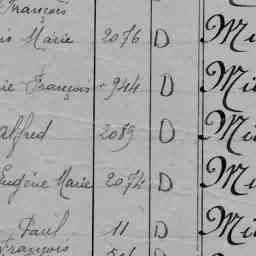 François
is Marie 2076 D Mi
ie François 944 D Mi
Alfred 2089 D Mi
Eugène Marie 2074 D Mi
Paul 11 D Mi
François